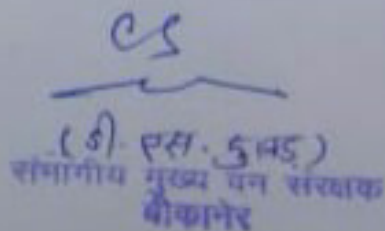 (डी. एस.
संभागीय मुख्य वन संरक्षक
बीकानेर